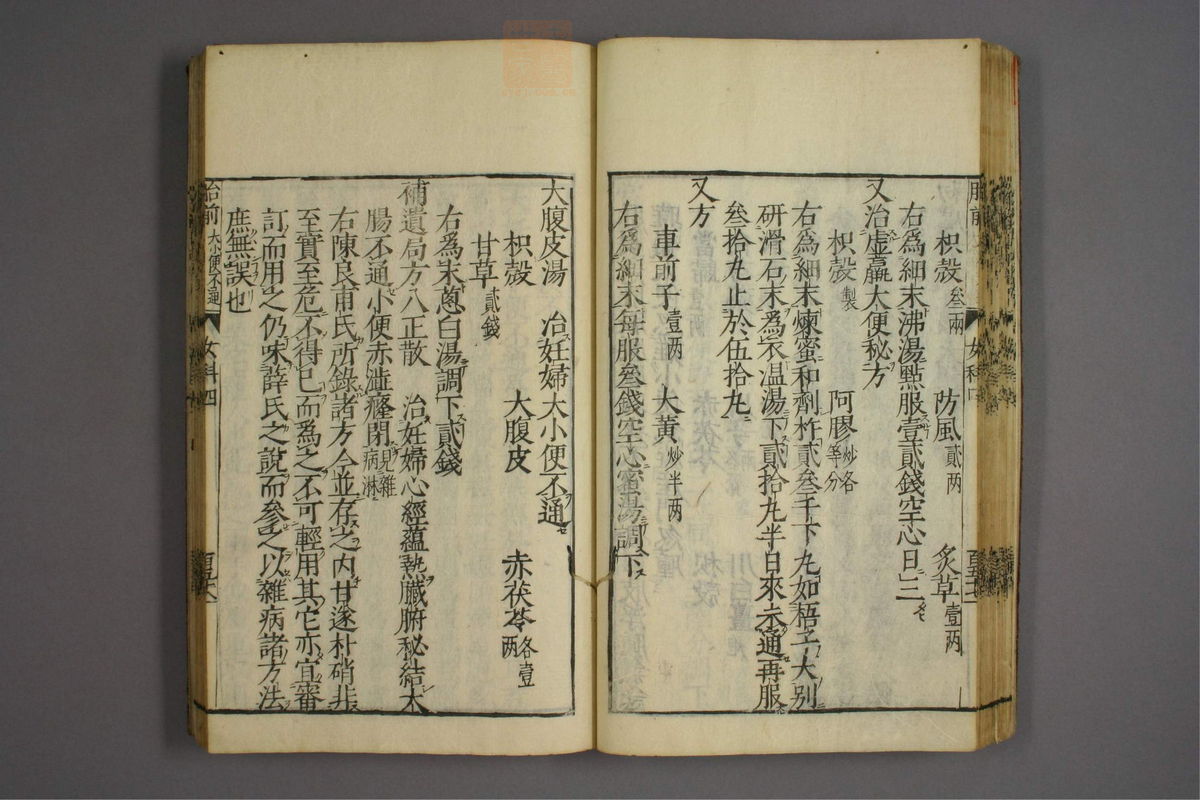 枳殼叄兩 防風貳两 炙草壹两
右爲細末沸湯㸃服壹貳錢空心日三
又治虚羸大便秘方
枳殼製 阿膠炒各等分
右爲細末煉蜜和劑杵貳叄千下丸如梧子大别
研滑石末爲衣温湯下貳拾丸半日來未通再服
叄拾丸止於伍拾丸
又方
車前子壹两 大黄炒半两
右爲細末每服叄錢空心蜜湯調下
大腹皮湯 治妊婦大小便不通
枳殼 大腹皮 赤茯苓各壹两
甘草貳錢
右爲末葱白湯調下貳錢
補遺局方八正散 治妊婦心經蘊熱臓腑秘結大
腸不通小便赤澁癃閉見雜病淋
右陳良甫氏所錄諸方今並存之内甘遂朴硝非
至實至危不得已而爲之不可輕用其它亦宜審
訂而用之仍味薛氏之說而參之以雜病諸方法
庶無誤也
胎前 大小便不通 女科四